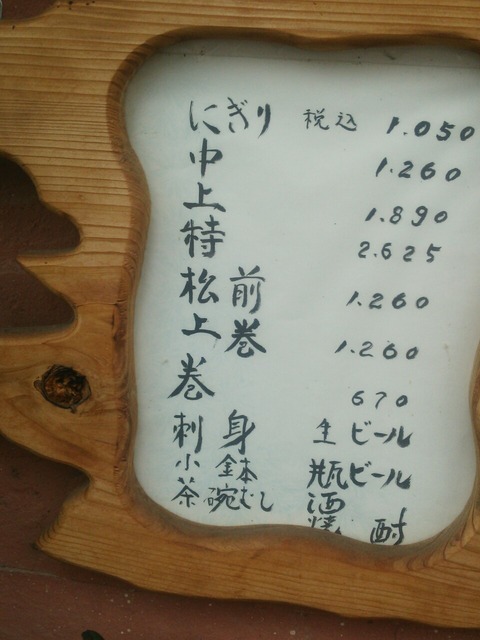 にぎり 税込 1.050
中 1.260
上 1.890
特 2.625
松前 1.260
上巻 1.260
巻 670
刺身 生ビール
小鉢 瓶ビール
茶碗むし 酒
焼酎